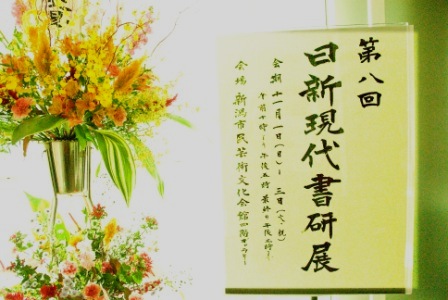 第八回
日新現代書研展
会期 十一月一日(日)〜三日(火、祝)
午前十時〜午後五時 最終日午後三時〜
会場 新潟市民芸術文化会館四階ギャラリー